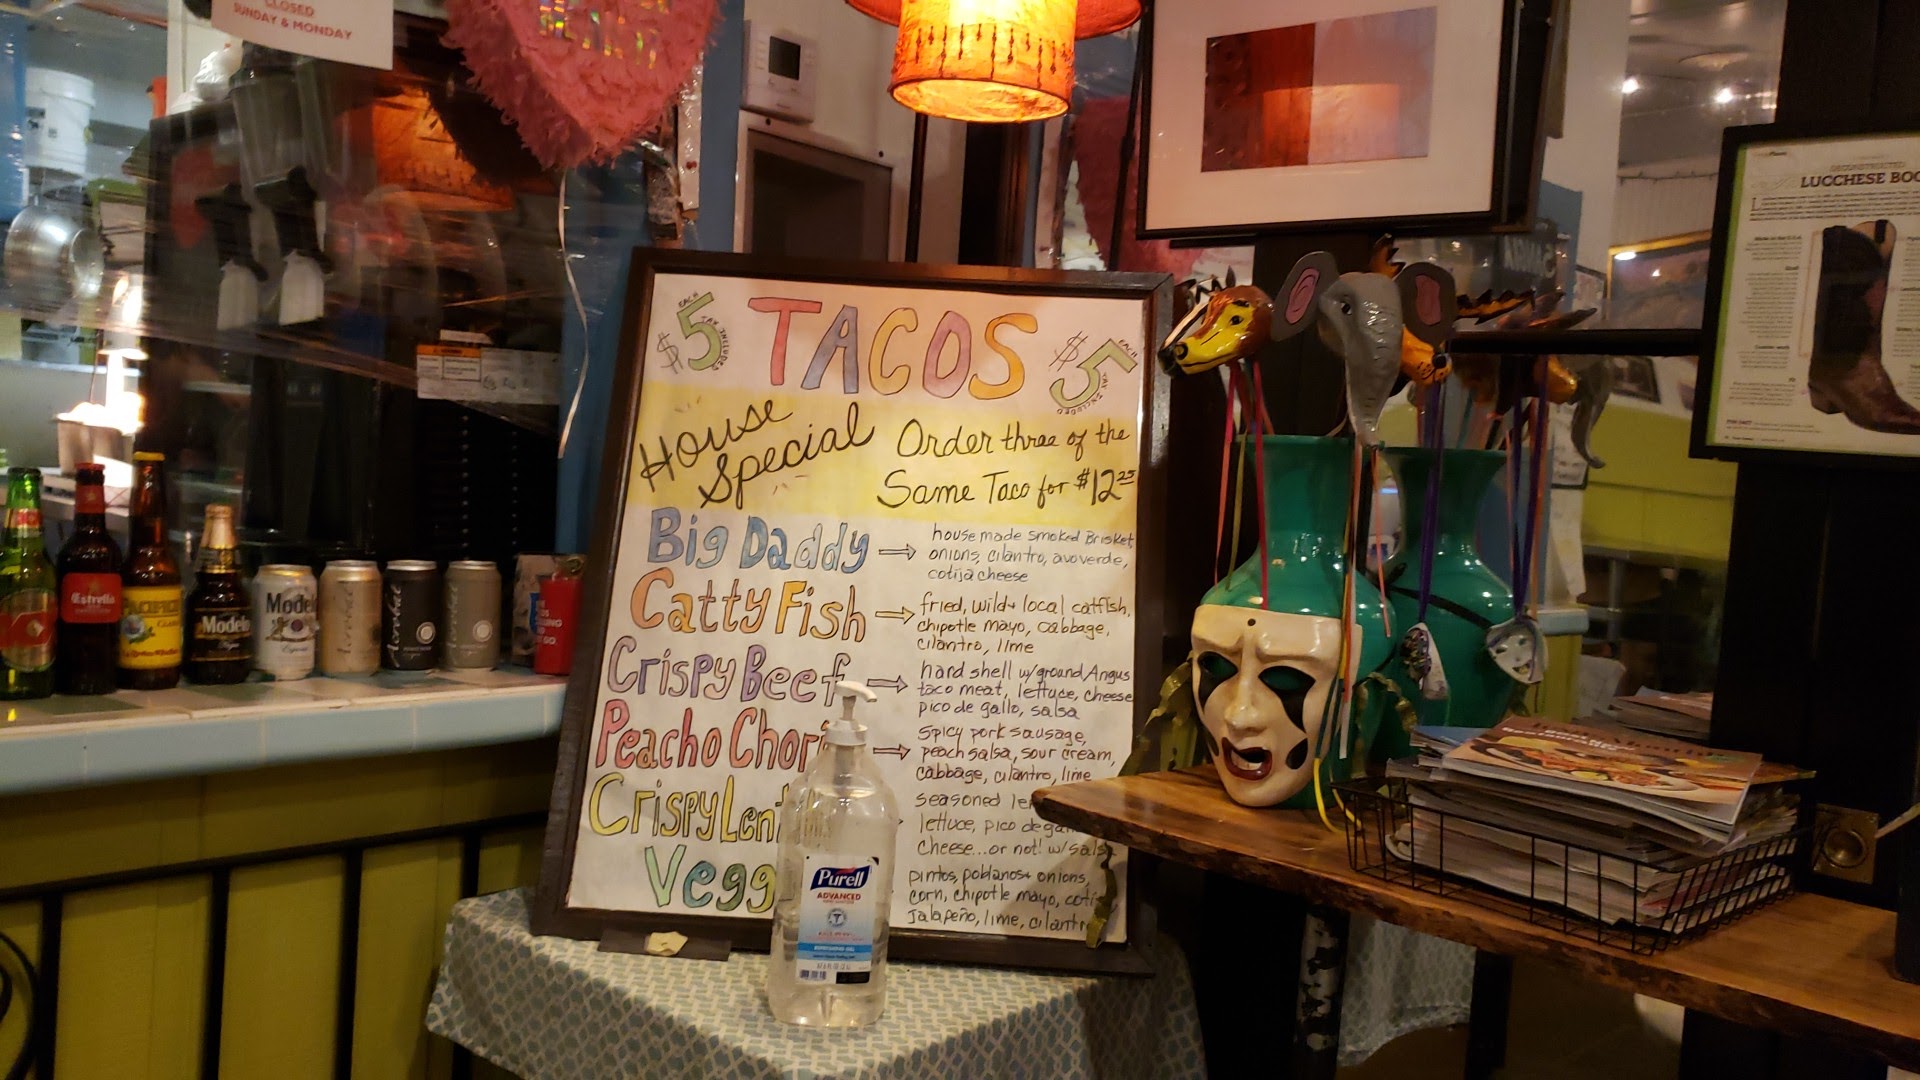 CLOSED
SUNDAY & MONDAY
$5 EACH
TAX INCLUDED
TACOS
$5 EACH
TAX INCLUDED
House Special
Order three of the
Same Taco for $12.25
Big Daddy
house made smoked Brisket,
onions, cilantro, avoverde,
cotija cheese
Catty Fish
fried, wild + local catfish,
chipotle mayo, cabbage,
cilantro, lime
Crispy Beef
hard shell w/ground Angus
taco meat, lettuce, cheese
pico de gallo, salsa
Peacho Chori
Spicy pork sausage,
peach salsa, sour cream,
cabbage, cilantro, lime
Crispy Lent
seasoned le
lettuce, pico de ga
cheese...or not! w/salsa
Vegg
pintos, poblanos + onions,
corn, chipotle mayo, coti
Jalapeño, lime, cilantr
PURELL
ADVANCED
Estrella
PACIFICO
Modelo
Modelo
DECONSTRUCTED
LUCCHESE BOO